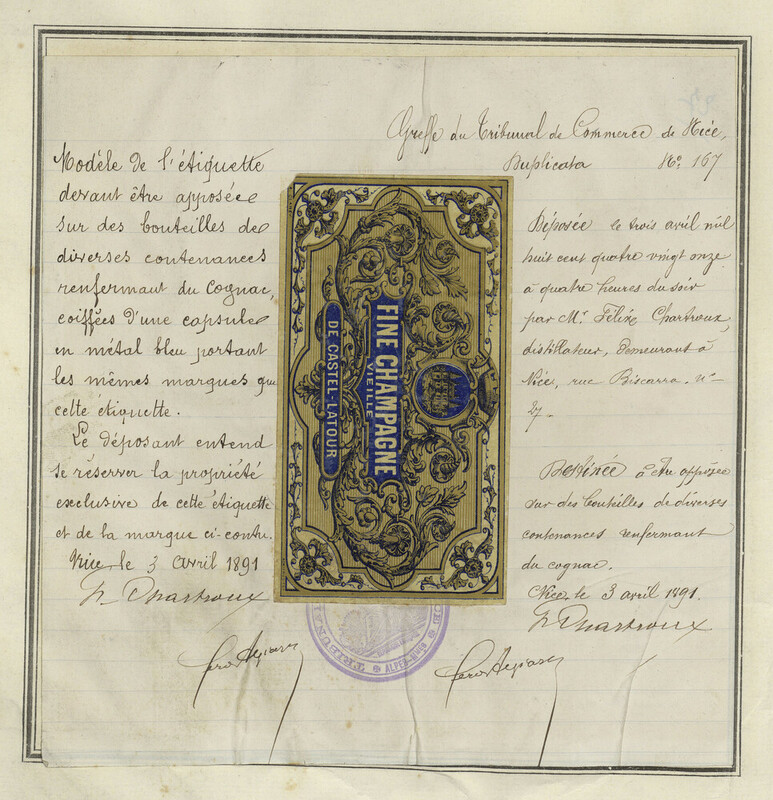 Greffe du Tribunal de Commerce de Nice,
Duplicata No. 167
Modèle de l'étiquette
devant être apposée
sur des bouteilles de
diverses contenances
renfermant du Cognac,
coiffées d'une capsule
en métal bleu portant
les mêmes marques que
cette étiquette.
Le déposant entend
se réserver la propriété
exclusive de cette étiquette
et de la marque ci-contre.
Nice le 3 avril 1891
F. Chartroux
FINE CHAMPAGNE
VIEILLE
DE CASTEL-LATOUR
Déposée le trois avril mil
huit cent quatre vingt onze
à quatre heures du soir
par Mr. Félix Chartroux,
distillateur, demeurant à
Nice, rue Biscarra. no
27.
Destinée à être apposée
sur des bouteilles de diverses
contenances renfermant
du cognac.
Nice le 3 avril 1891.
F. Chartroux
TRIBUNAL
ALPES-Mmes